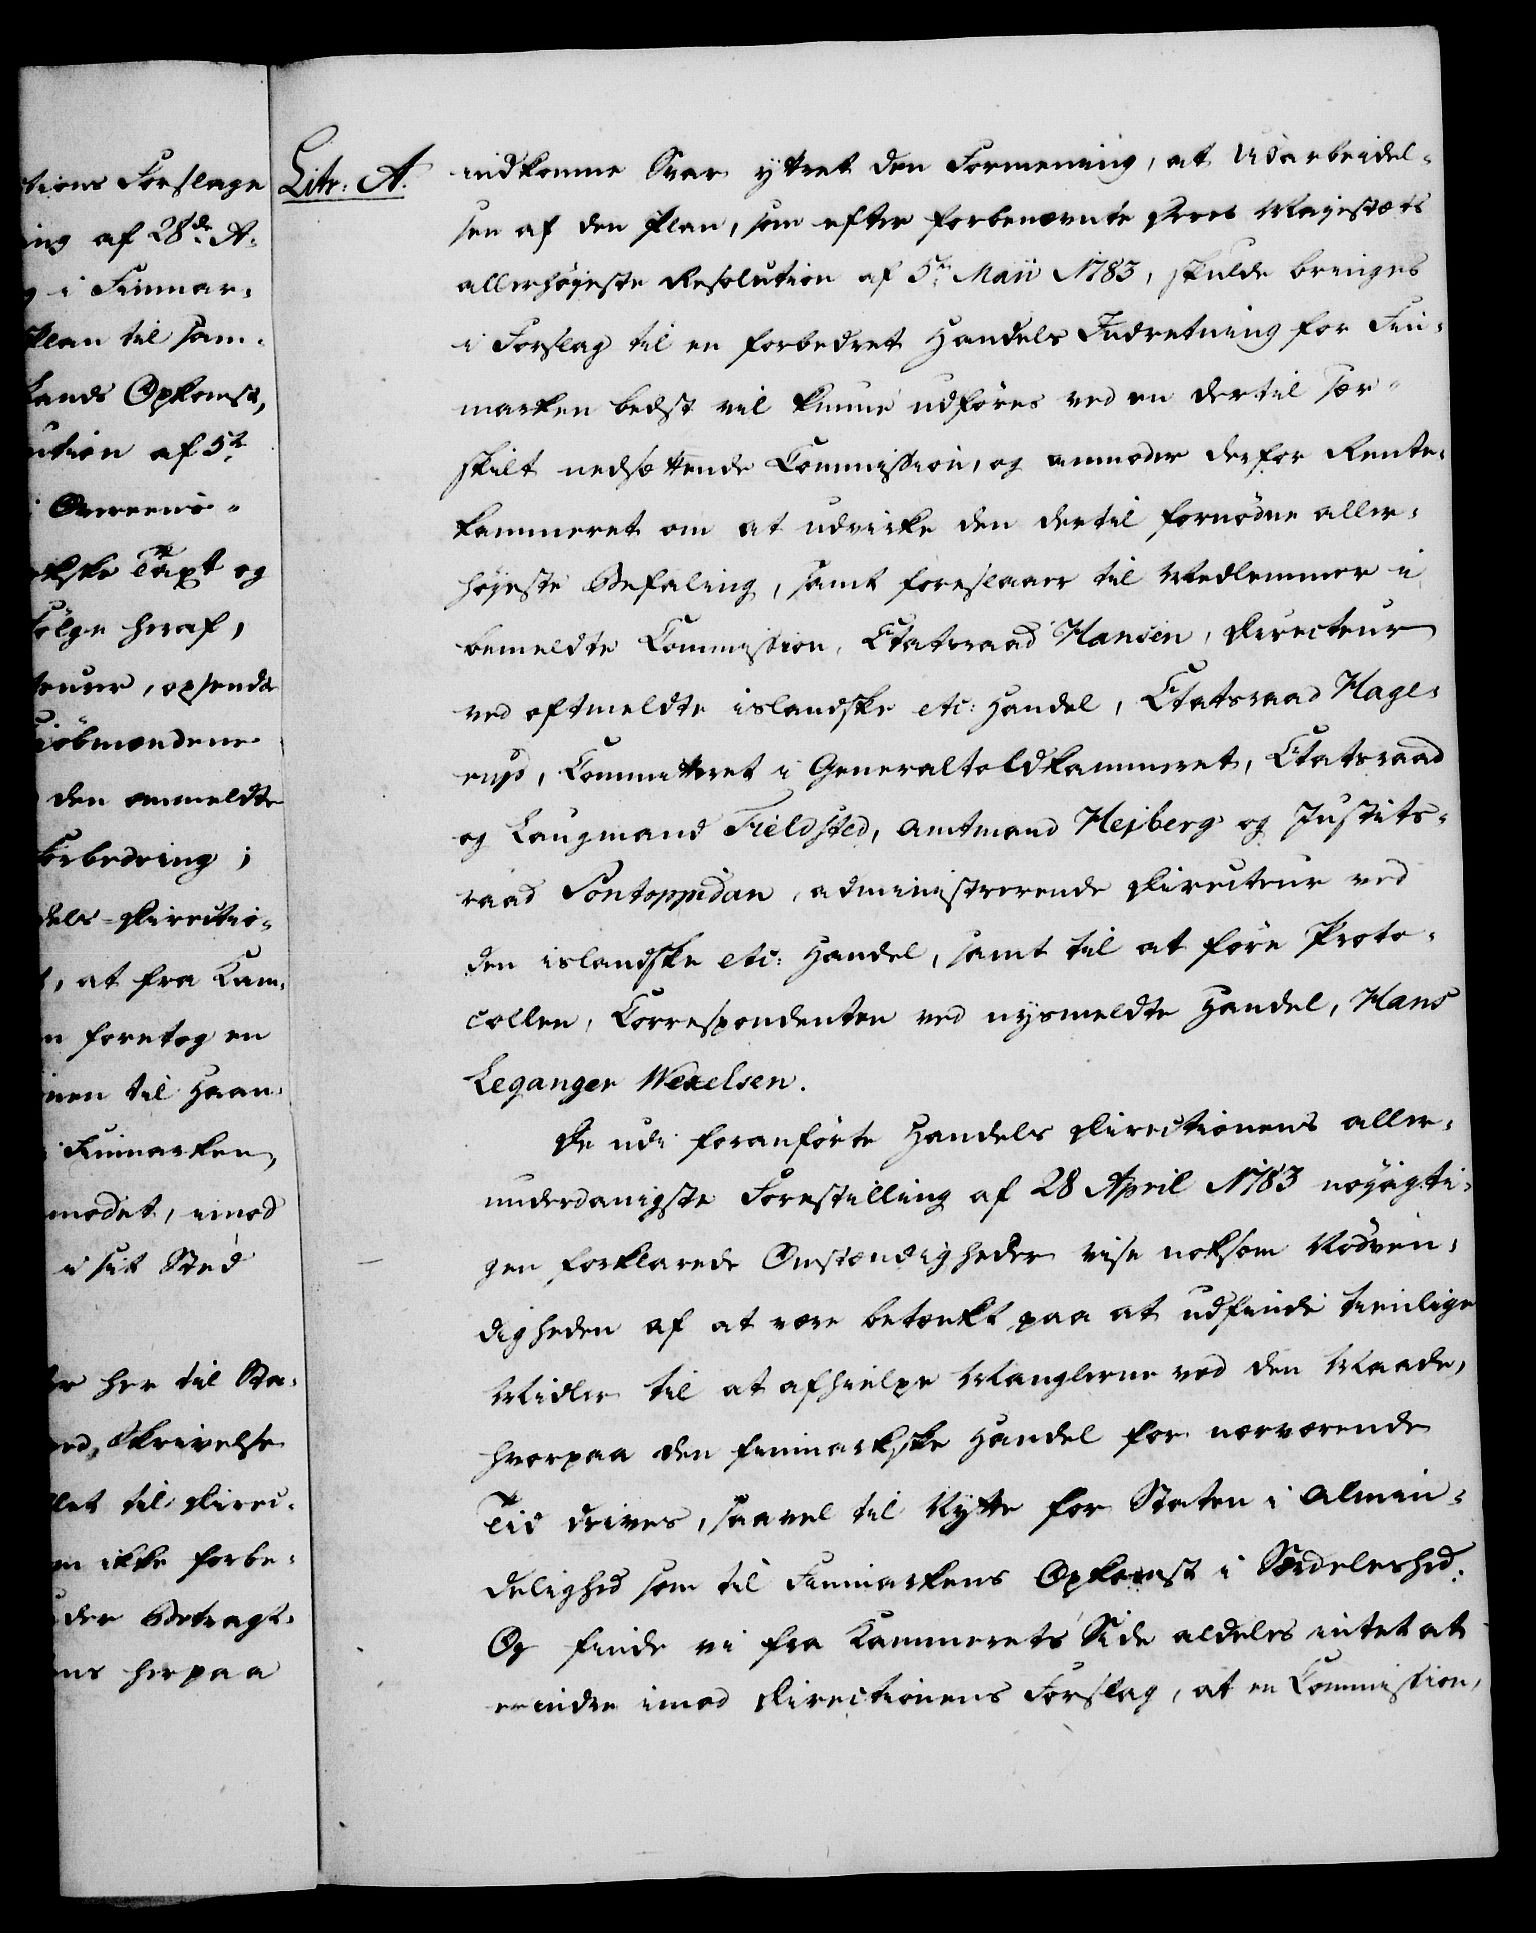 tions Forslage
ing af 28de A⸗
g i Finmar⸗
Plan til sam⸗
Lands Opkomst,
ution af 5te
i Overeens⸗
rkske Taxt og
følge heraf,
teurer, opsendte
Kiöbmændene
den anmeldte
Forbedring;
dels-Directio⸗
t, at fra Kam⸗
n foretog en
nen til Haan⸗
i Finmarken,
modet, imod
i sit Sted
er her til Sta⸗
ved, Skrivelse
llet til Direc⸗
en ikke forbe⸗
under Betragt⸗
ens herpaa
Litr. A.
indkomne Svar yttret den Formening, at Udarbeidel⸗
sen af den Plan, som efter forbenævnte Deres Majestæts
allerhöjeste Resolution af 5te Maii 1783, skulde bringes
i Forslag til en forbedret Handels Indretning for Fin⸗
marken bedst vil kunne udföres ved en dertil sær⸗
skilt nedsættende Commission, og anmoder derfor Rente⸗
kammeret om at udvirke den dertil fornödne aller⸗
höjeste Befaling, samt foreslaaer til Medlemmer i
bemeldte Commission, Etatsraad Hansen, Directeur
ved oftmeldte islandske etc: Handel, Etatsraad Hage⸗
rup, Committeret i Generaltoldkammeret, Etatsraad
og Laugmand Fieldsted, Amtmand Hejberg og Justits⸗
raad Pontoppidan, administrerende Directeur ved
den islandske etc: Handel, samt til at före Proto⸗
collen, Correspondenten ved nysmeldte Handel, Hans
Leganger Wexelsen.
De udi foranförte Handels Directionens aller⸗
underdanigste Forestilling af 28 April 1783 nöjagti⸗
gen forklarede Omstændigheder vise noksom Nödven⸗
digheden af at være betænkt paa at udfinde tienlige
Midler til at afhielpe Manglerne ved den Maade,
hvorpaa den finmarkske Handel for nærværende
Tid drives, saavel til Nytte for Staten i Almin⸗
delighed som til Finmarkens Opkomst i Særdeleshed.
Og finde vi fra Kammerets Side aldeles intet at
erindre imod Directionens Forslag, at en Commission,